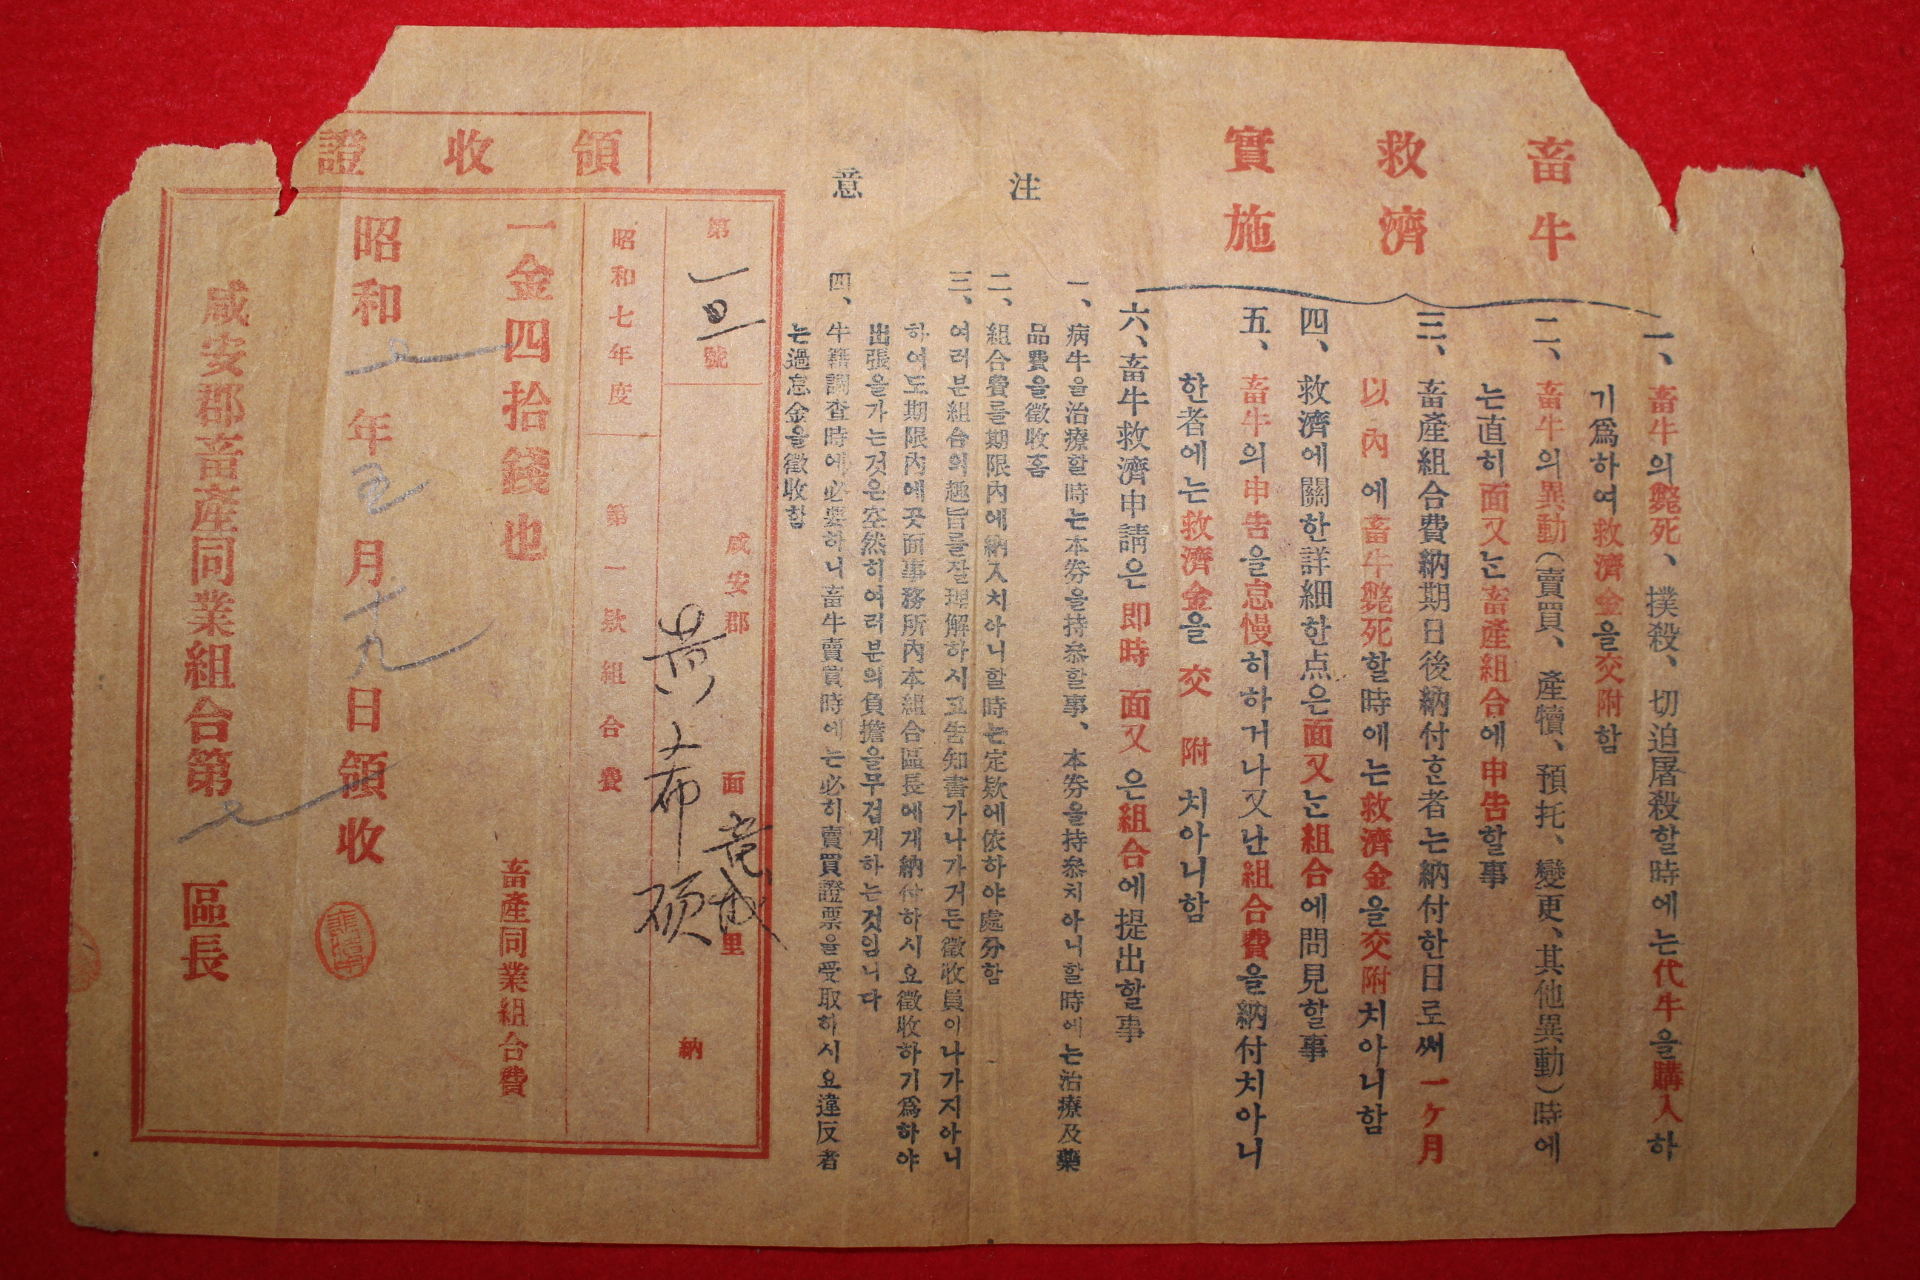 畜牛
救濟
實施
一、畜牛의斃死、撲殺、切迫屠殺할時에는代牛을購入하
기爲하여救濟金을交附함
二、畜牛의異動(賣買、產犢、預托、變更、其他異動)時에
는直히面又는畜產組合에申告할事
三、畜產組合費納期日後納付한者는納付한日로써一ケ月
以內에畜牛斃死할時에는救濟金을交附치아니함
四、救濟에關한詳細한点은面又는組合에問見할事
五、畜牛의申告을怠慢히하거나又난組合費을納付치아니
한者에는救濟金을交附치아니함
六、畜牛救濟申請은即時面又은組合에提出할事
注意
一、病牛을治療할時는本券을持參할事、本券을持參치아니할時에는治療及藥
品費을徵收홈
二、組合費를期限內에納入치아니할時는定欵에依하야處分함
三、여러분組合의趣旨를잘理解하시고告知書가나가거든徵收員이나가지아니
하여도期限內에곳面事務所內本組合區長에게納付하시요徵收하기爲하야
出張을가는것은空然히여러분의負擔을무겁게하는것임니다
四、牛籍調查時에必要하니畜牛賣買時에는必히賣買證票을受取하시요違反者
는過怠金을徵收함
領收證
第一 號
咸安郡 面 里
黃 希 碩 納
昭和七年度
第一欵組合費
一金四拾錢也
畜產同業組合費
昭和 年 五 月 十九 日領收
咸安郡畜產同業組合第 區長